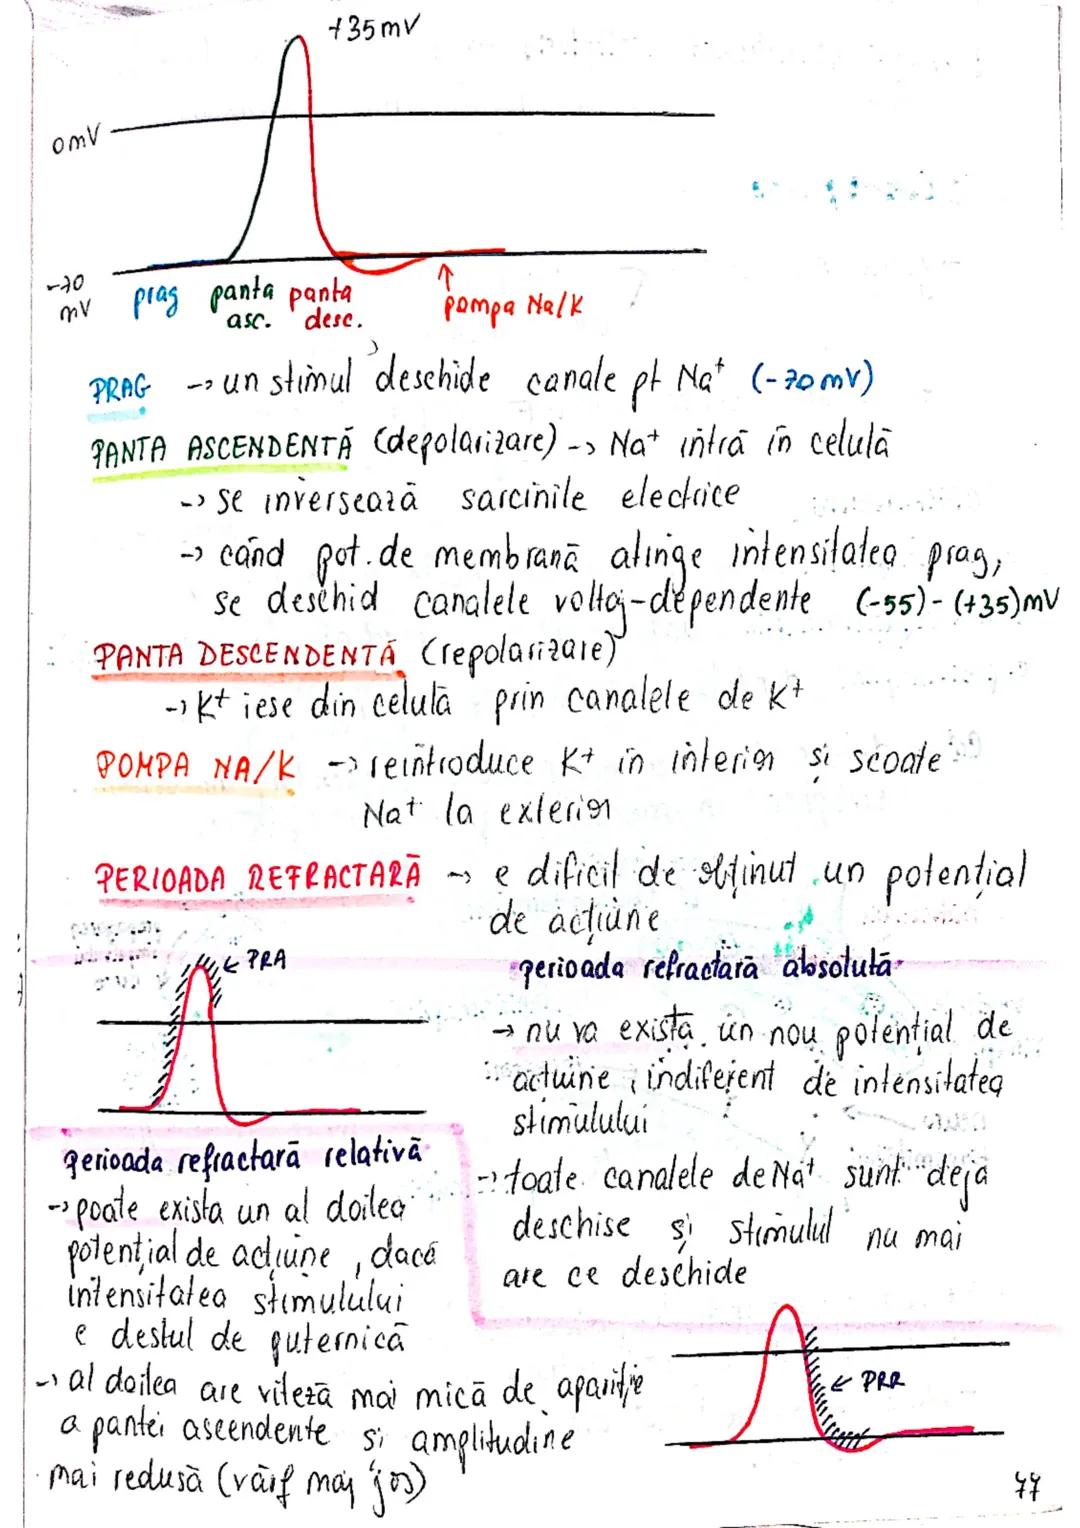 +35mV
0mV
-70
mV
prag
panta
asc.
panta
desc.
pompa Na/K
PRAG -> un stimul deschide canale pt Na⁺ (-70mV)
PANTA ASCENDENTĂ (depolarizare) -> Na⁺ intră în celulă
-> se inversează sarcinile electrice
-> când pot. de membrană atinge intensitatea prag,
se deschid canalele voltaj-dependente (-55) - (+35)mV
PANTA DESCENDENTĂ (repolarizare)
-> K⁺ iese din celulă prin canalele de K⁺
POMPA NA/K -> reintroduce K⁺ în interior și scoate
Na⁺ la exterior
PERIOADA REFRACTARĂ -> e dificil de obținut un potențial
de acțiune
← PRA
perioada refractară absolută
→ nu va exista un nou potențial de
actuine, indiferent de intensitatea
stimulului
-> toate canalele de Na⁺ sunt deja
deschise și stimulul nu mai
are ce deschide
perioada refractară relativă
-> poate exista un al doilea
potențial de acțiune, dacă
intensitatea stimulului
e destul de puternică
-> al doilea are viteză mai mică de apariție
a pantei ascendente și amplitudine
mai redusă (vârf mai jos)
← PRR
77